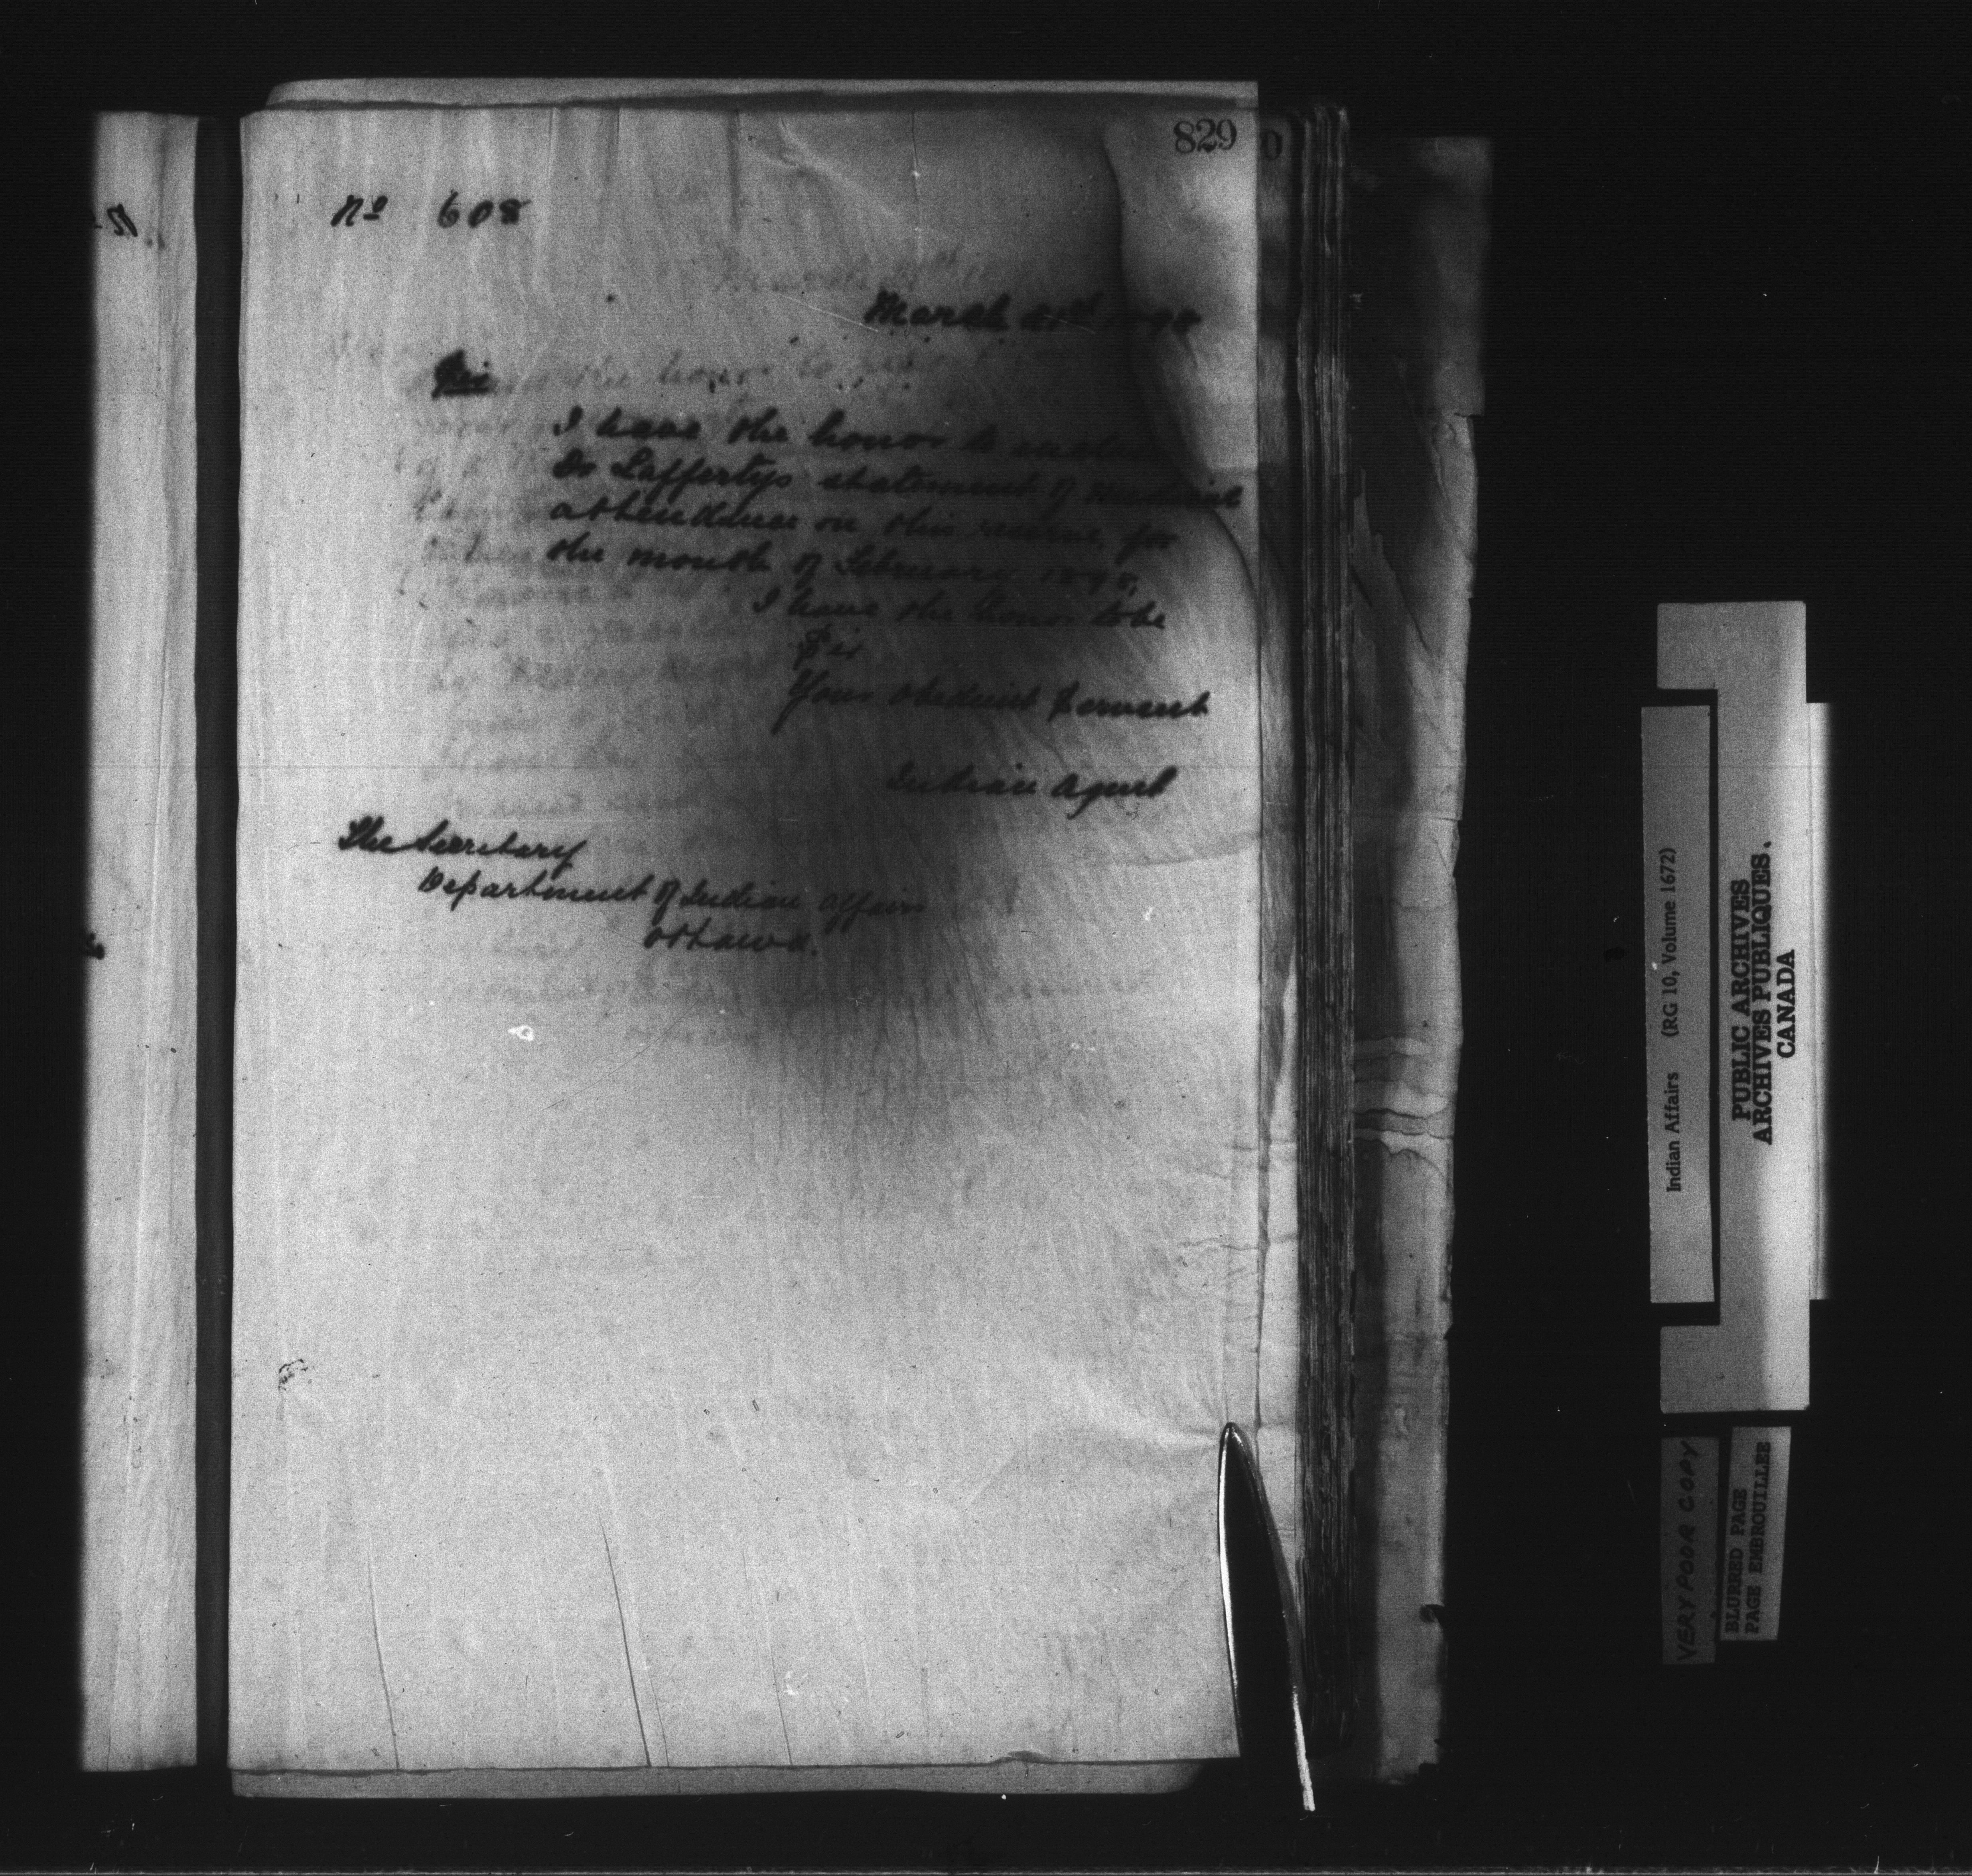 829
No 608
March 21st 1898
Sir
I have the honor to enclose
Dr Laffertys statement of medical
attendance on this reserve, for
the month of February 1898,
I have the honor to be
Sir
Your obedient servant
Indian Agent
The Secretary
Department of Indian Affairs
Ottawa.
Indian Affairs (RG 10, Volume 1672)
PUBLIC ARCHIVES
ARCHIVES PUBLIQUES.
CANADA
VERY POOR COPY
BLURRED PAGE
PAGE EMBROUILLEE